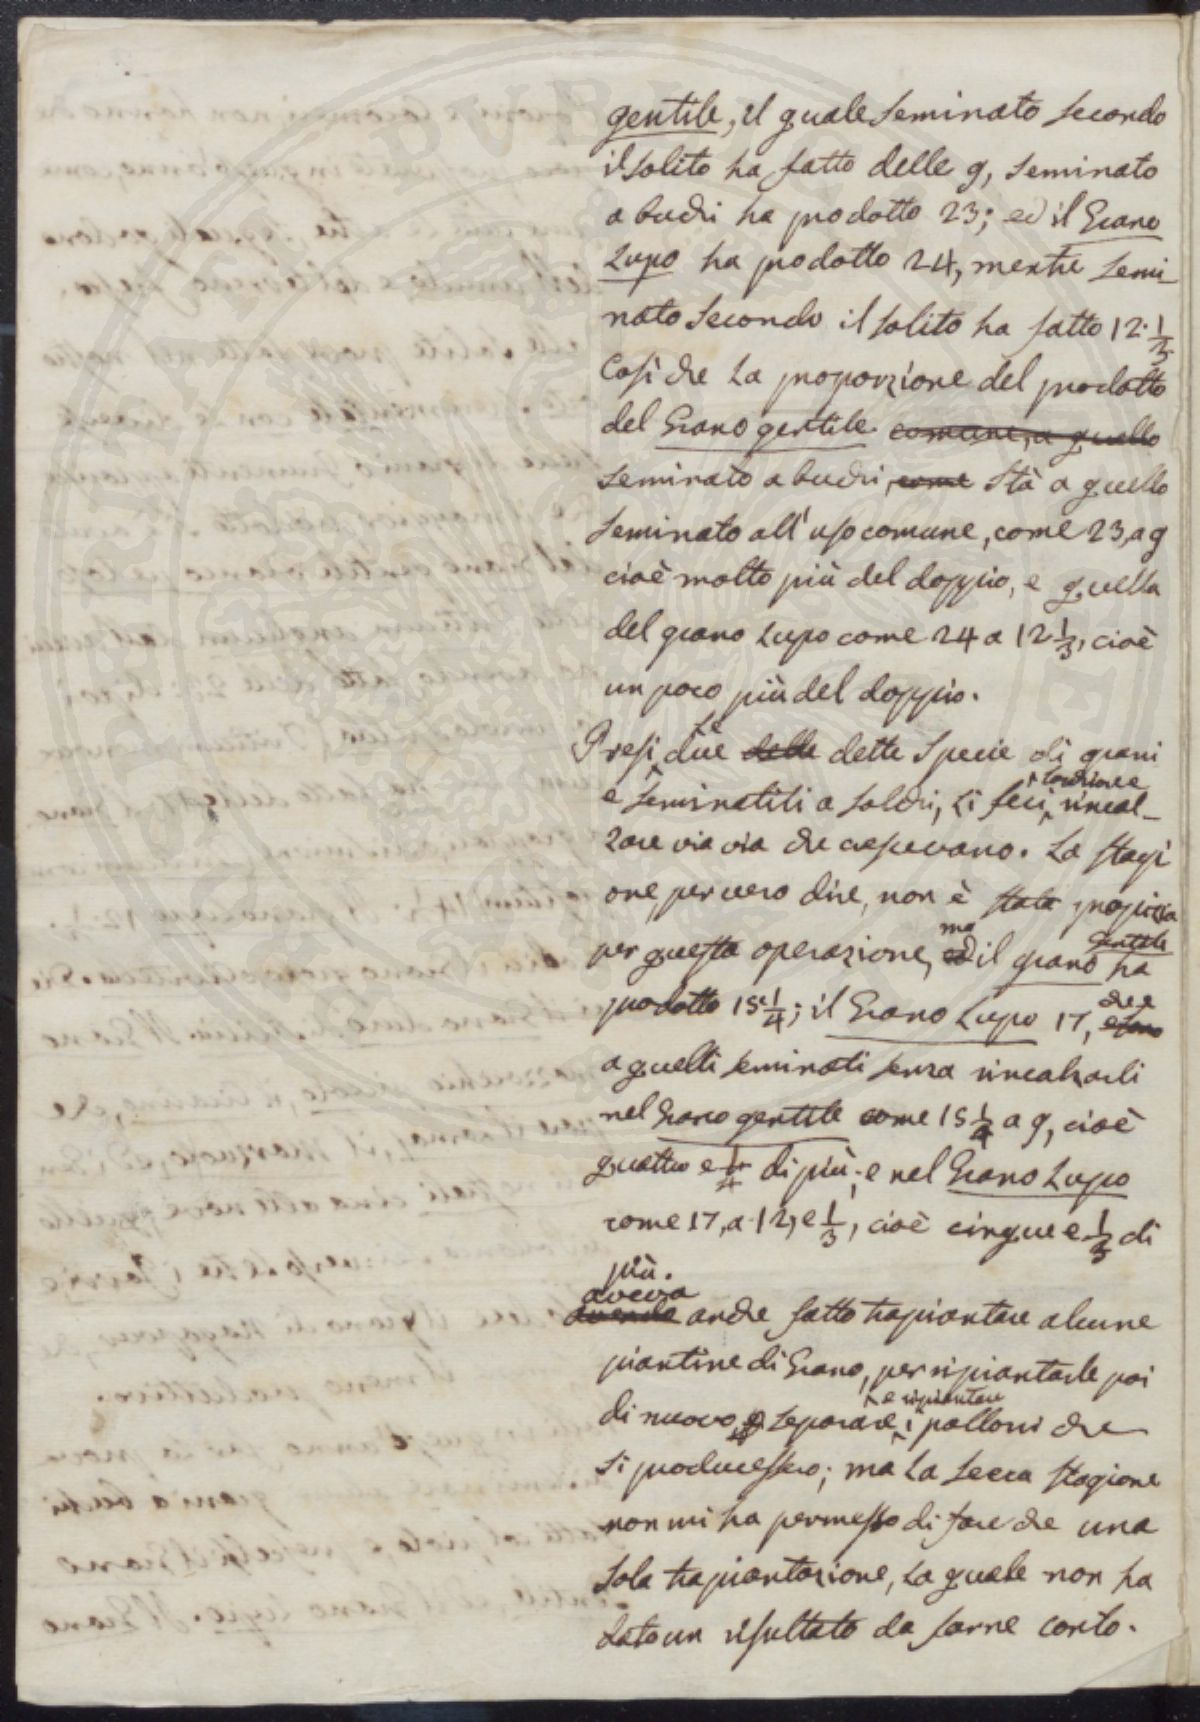 gentile, il quale seminato secondo
il solito ha fatto delle 9, seminato
a buchi ha prodotto 23; ed il Grano
Lupo ha prodotto 24, mentre semi-
nato secondo il solito ha fatto 12 1/3
Così che la proporzione del prodotto
del Grano gentile comune, a quello
seminato a buchi, come stà a quello
seminato all'uso comune, come 23, a 9
cioè molto più del doppio, e quella
del grano Lupo come 24 a 12 1/3, cioè
un poco più del doppio.
Presi due delle dette Specie di grani
e seminatili a solchi, li feci rincal-
zare via via che crescevano. La stagi
one, per vero dire, non è stata propizia
per questa operazione, ma ed il grano gentile ha
prodotto 15 1/4; il Grano Lupo 17, che
a quelli seminati senza rincalzarli
nel Grano gentile come 15 1/4 a 9, cioè
quattro e 1/4 di più; e nel Grano Lupo
come 17, a 12, e 1/3, cioè cinque e 1/3 di
più.
aveva
avendo anche fatto trapiantare alcune
piantine di Grano, per ripiantarle poi
di nuovo, e separare e ripiantare i polloni che
si producessero; ma la secca stagione
non mi ha permesso di fare che una
sola trapiantazione, la quale non ha
dato un risultato da farne conto.